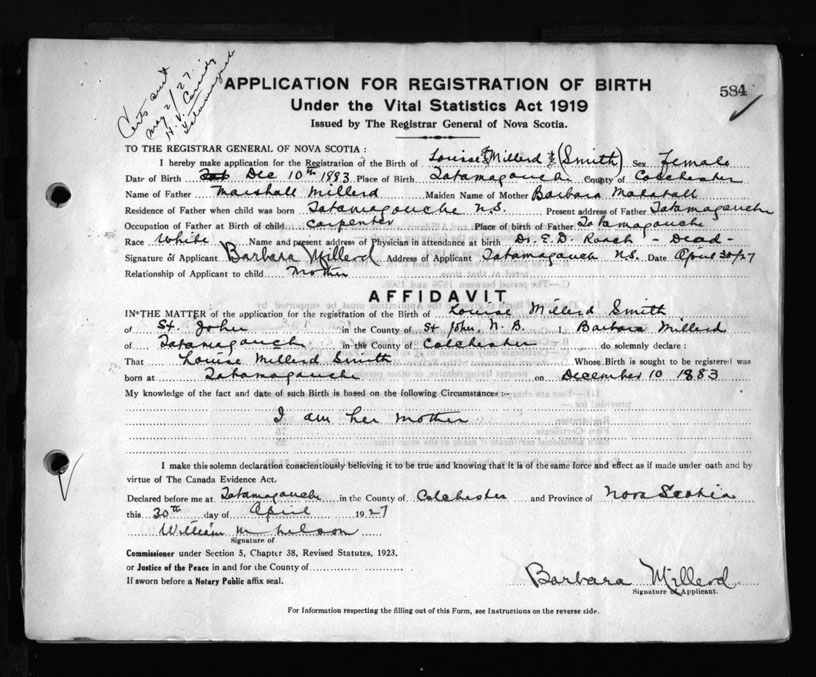 Certs sent
May 2/27
APPLICATION FOR REGISTRATION OF BIRTH
584
Under the Vital Statistics Act 1919
Issued by The Registrar General of Nova Scotia.
TO THE REGISTRAR GENERAL OF NOVA SCOTIA :
I hereby make application for the Registration of the Birth of Louise Millerd (Smith) Sex Female
Date of Birth Dec 10th 1883 Place of Birth Tatamagouche County of Colchester
Name of Father Marshall Millerd Maiden Name of Mother Barbara
Residence of Father when child was born Tatamagouche N.S. Present address of Father Tatamagouche
Occupation of Father at Birth of child Carpenter Place of birth of Father Tatamagouche
Race White Name and present address of Physician in attendance at birth Dr. E. D. Roach - Dead -
Signature of Applicant Barbara Millerd Address of Applicant Tatamagouch N.S. Date April 30/27
Relationship of Applicant to child Mother
AFFIDAVIT
IN THE MATTER of the application for the registration of the Birth of Louise Millerd Smith
of St. John in the County of St John, N. B. I, Barbara Millerd
of Tatamagouch in the County of Colchester do solemnly declare :
That Louise Millerd Smith Whose Birth is sought to be registered was
born at Tatamagouche on December 10 1883
My knowledge of the fact and date of such Birth is based on the following Circumstances :-
I am her mother
I make this solemn declaration conscientiously believing it to be true and knowing that it is of the same force and effect as if made under oath and by
virtue of The Canada Evidence Act.
Declared before me at Tatamagouche in the County of Colchester and Province of Nova Scotia
this 30th day of April 1927
William M Nelson
Signature of
Commissioner under Section 5, Chapter 38, Revised Statutes, 1923.
or Justice of the Peace in and for the County of
If sworn before a Notary Public affix seal.
Barbara Millerd
Signature of Applicant.
For Information respecting the filling out of this Form, see Instructions on the reverse side.